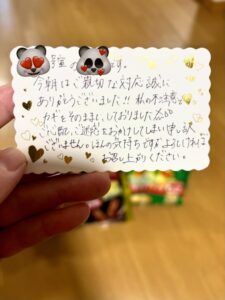 室 です。
今朝はご親切な対応誠に
ありがとうございました!! 私の不注意で
カギをそのままにしておりました為
ご心配、ご迷惑をおかけしてしまい申し訳
ございません。ほんの気持ちですがよろしければ
お召し上がりください。